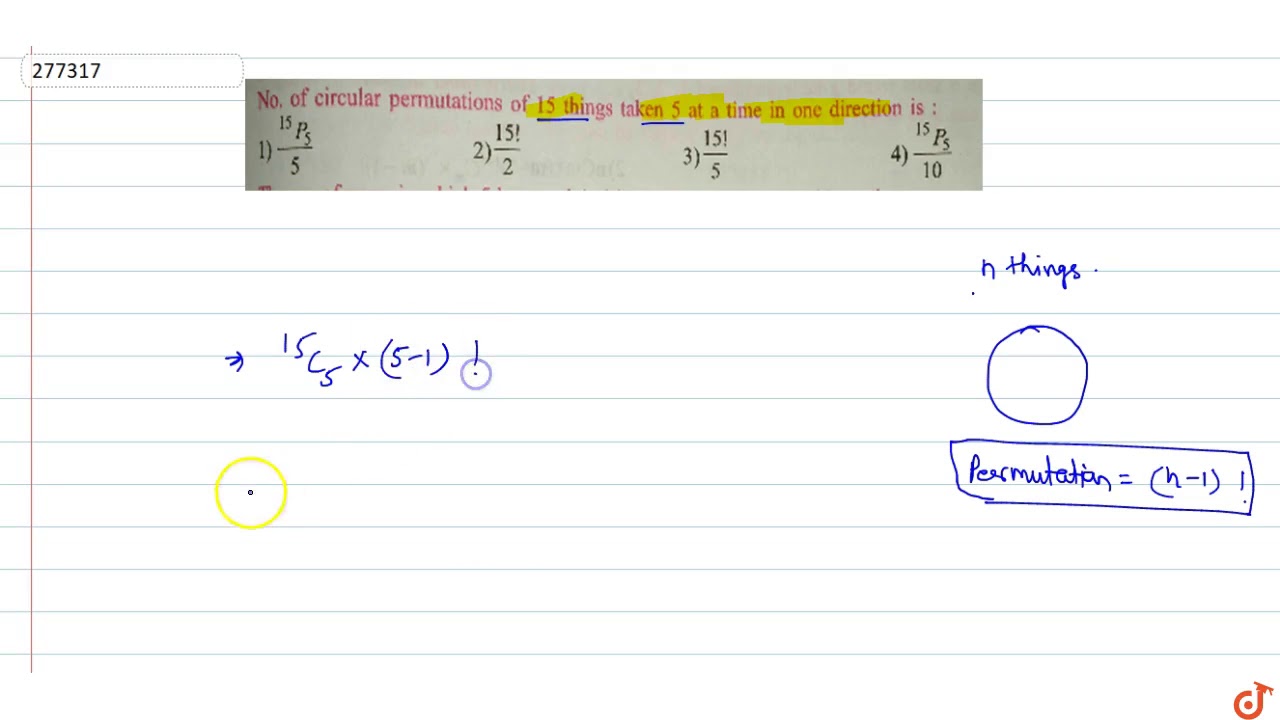 277317
No. of circular permutations of 15 things taken 5 at a time in one direction is :
1) ¹⁵P₅/5 2) 15!/2 3) 15!/5 4) ¹⁵P₅/10
n things .
→ ¹⁵C₅ × (5-1) !
Permutation = (n-1) !